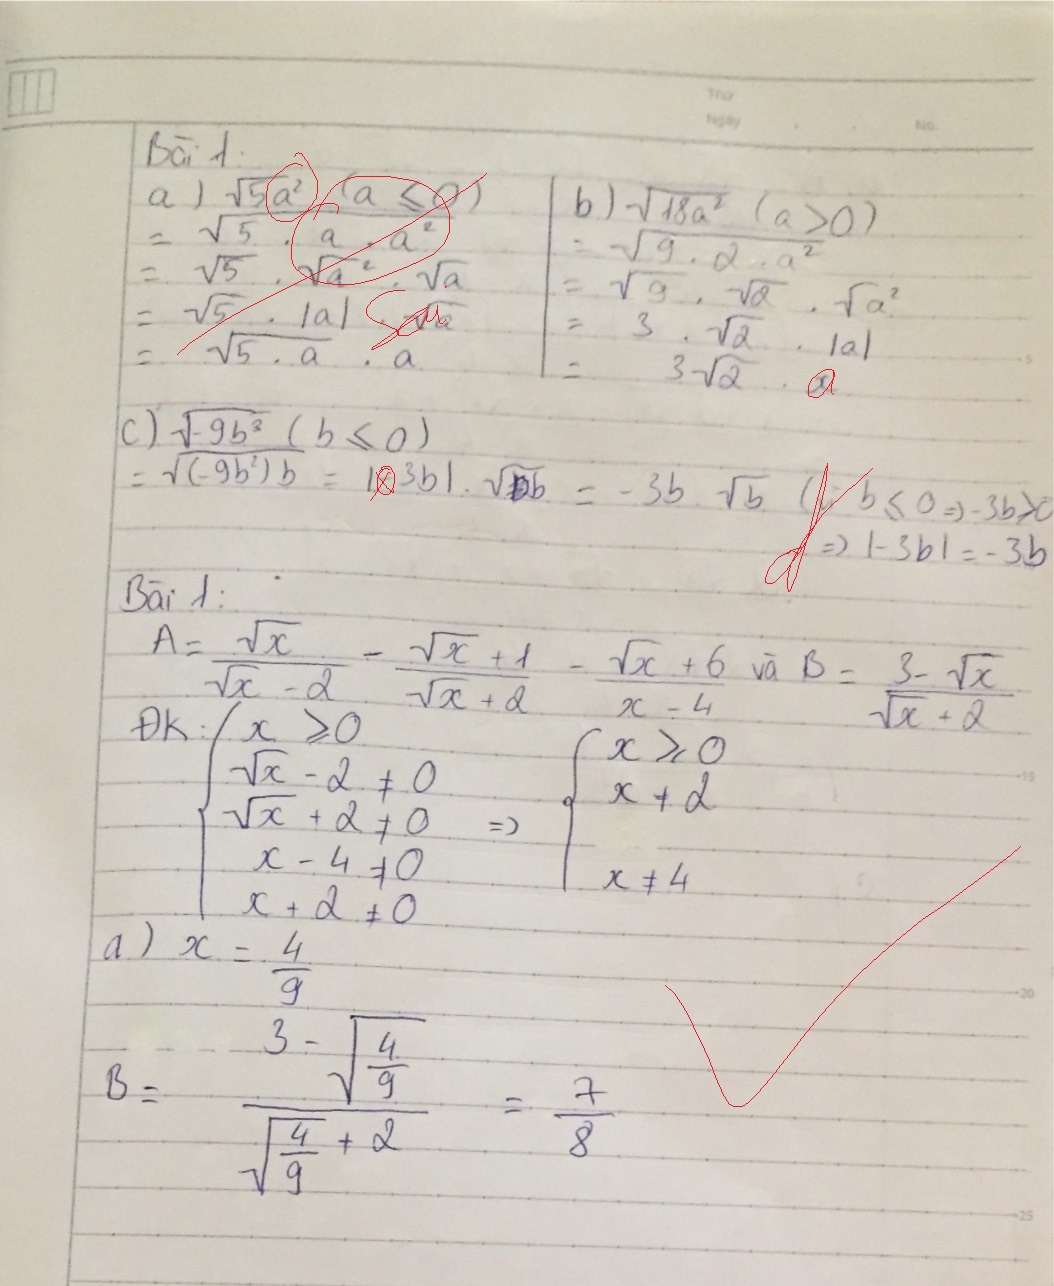 Thứ
Ngày . . No.
Bài 1:
a) √5a² (a ≤ 0)
= √5 . a . a²
= √5 . √a² . √a
= √5 . |a| . √a
= √5 . a . a
b) √18a² (a > 0)
= √9 . 2 . a²
= √9 . √2 . √a²
= 3 . √2 . |a|
= 3√2 . a
c) √-9b³ (b ≤ 0)
= √(-9b²)b = |3b| . √b = -3b . √b (: b ≤ 0 => -3b ≥ 0
=> |-3b| = -3b
Bài 1:
A = √x / (√x - 2) - (√x + 1) / (√x + 2) - (√x + 6) / (x - 4) và B = (3 - √x) / (√x + 2)
ĐK: { x ≥ 0
√x - 2 ≠ 0
√x + 2 ≠ 0 =>
x - 4 ≠ 0
x + 2 ≠ 0
{ x ≥ 0
x ≠ 2
x ≠ 4
a) x = 4/9
B = (3 - √(4/9)) / (√(4/9) + 2) = 7/8
5
15
20
25